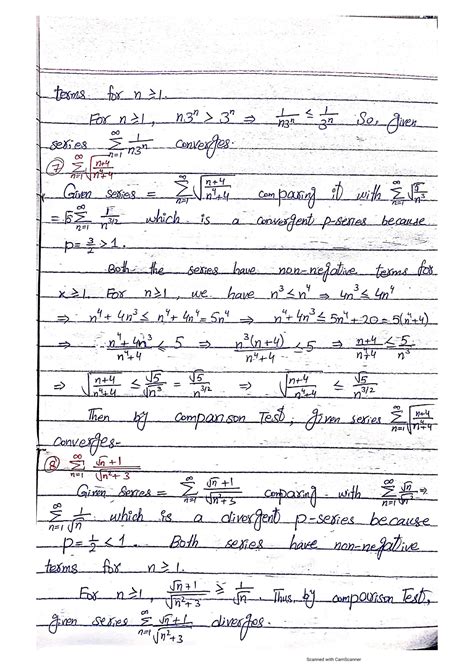 terms for n ≥ 1.
For n ≥ 1, n3ⁿ > 3ⁿ ⇒ 1/(n3ⁿ) ≤ 1/3ⁿ So, given
series ∑_{n=1}^{∞} 1/(n3ⁿ) converges.
⑦ ∑_{n=1}^{∞} √((n+4)/(n⁴+4))
Given series = ∑_{n=1}^{∞} √((n+4)/(n⁴+4)) comparing it with ∑_{n=1}^{∞} √(5/n³)
= √5 ∑_{n=1}^{∞} 1/n^{3/2} which is a convergent p-series because
p = 3/2 > 1.
Both the series have non-negative terms for
x ≥ 1. For n ≥ 1, we have n³ ≤ n⁴ ⇒ 4n³ ≤ 4n⁴
⇒ n⁴ + 4n³ ≤ n⁴ + 4n⁴ = 5n⁴ ⇒ n⁴ + 4n³ ≤ 5n⁴ + 20 = 5(n⁴+4)
⇒ (n⁴ + 4n³)/(n⁴+4) ≤ 5 ⇒ n³(n+4)/(n⁴+4) ≤ 5 ⇒ (n+4)/(n⁴+4) ≤ 5/n³
⇒ √((n+4)/(n⁴+4)) ≤ √5/√n³ = √5/n^{3/2} ⇒ √((n+4)/(n⁴+4)) ≤ √5/n^{3/2}
Then by comparison Test, given series ∑_{n=1}^{∞} √((n+4)/(n⁴+4))
converges-
⑧ ∑_{n=1}^{∞} (√n + 1)/√(n²+3)
Given series = ∑_{n=1}^{∞} (√n + 1)/√(n²+3) comparing with ∑_{n=1}^{∞} √n/√n² ⇒
∑_{n=1}^{∞} 1/√n which is a divergent p-series because
p = 1/2 < 1. Both series have non-negative
terms for n ≥ 1.
For n ≥ 1, (√n + 1)/√(n²+3) ≥ 1/√n. Thus, by comparison Test,
given series ∑_{n=1}^{∞} (√n + 1)/√(n²+3) diverges.
Scanned with CamScanner